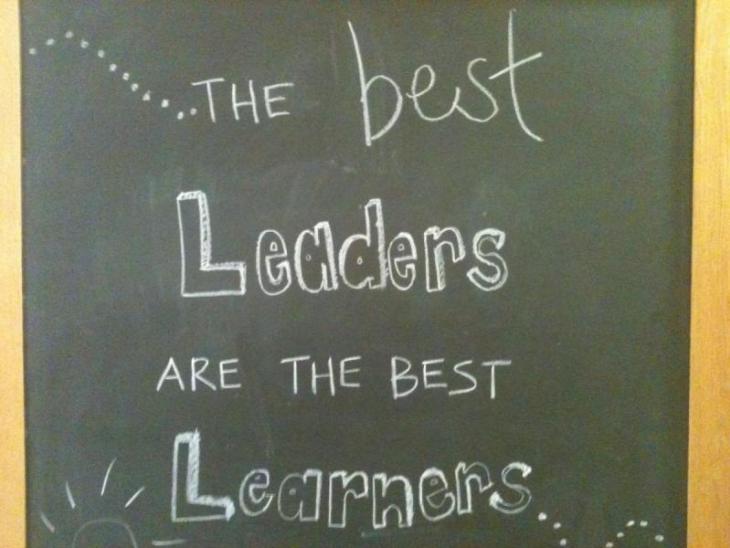 THE best
Leaders
ARE THE BEST
Learners